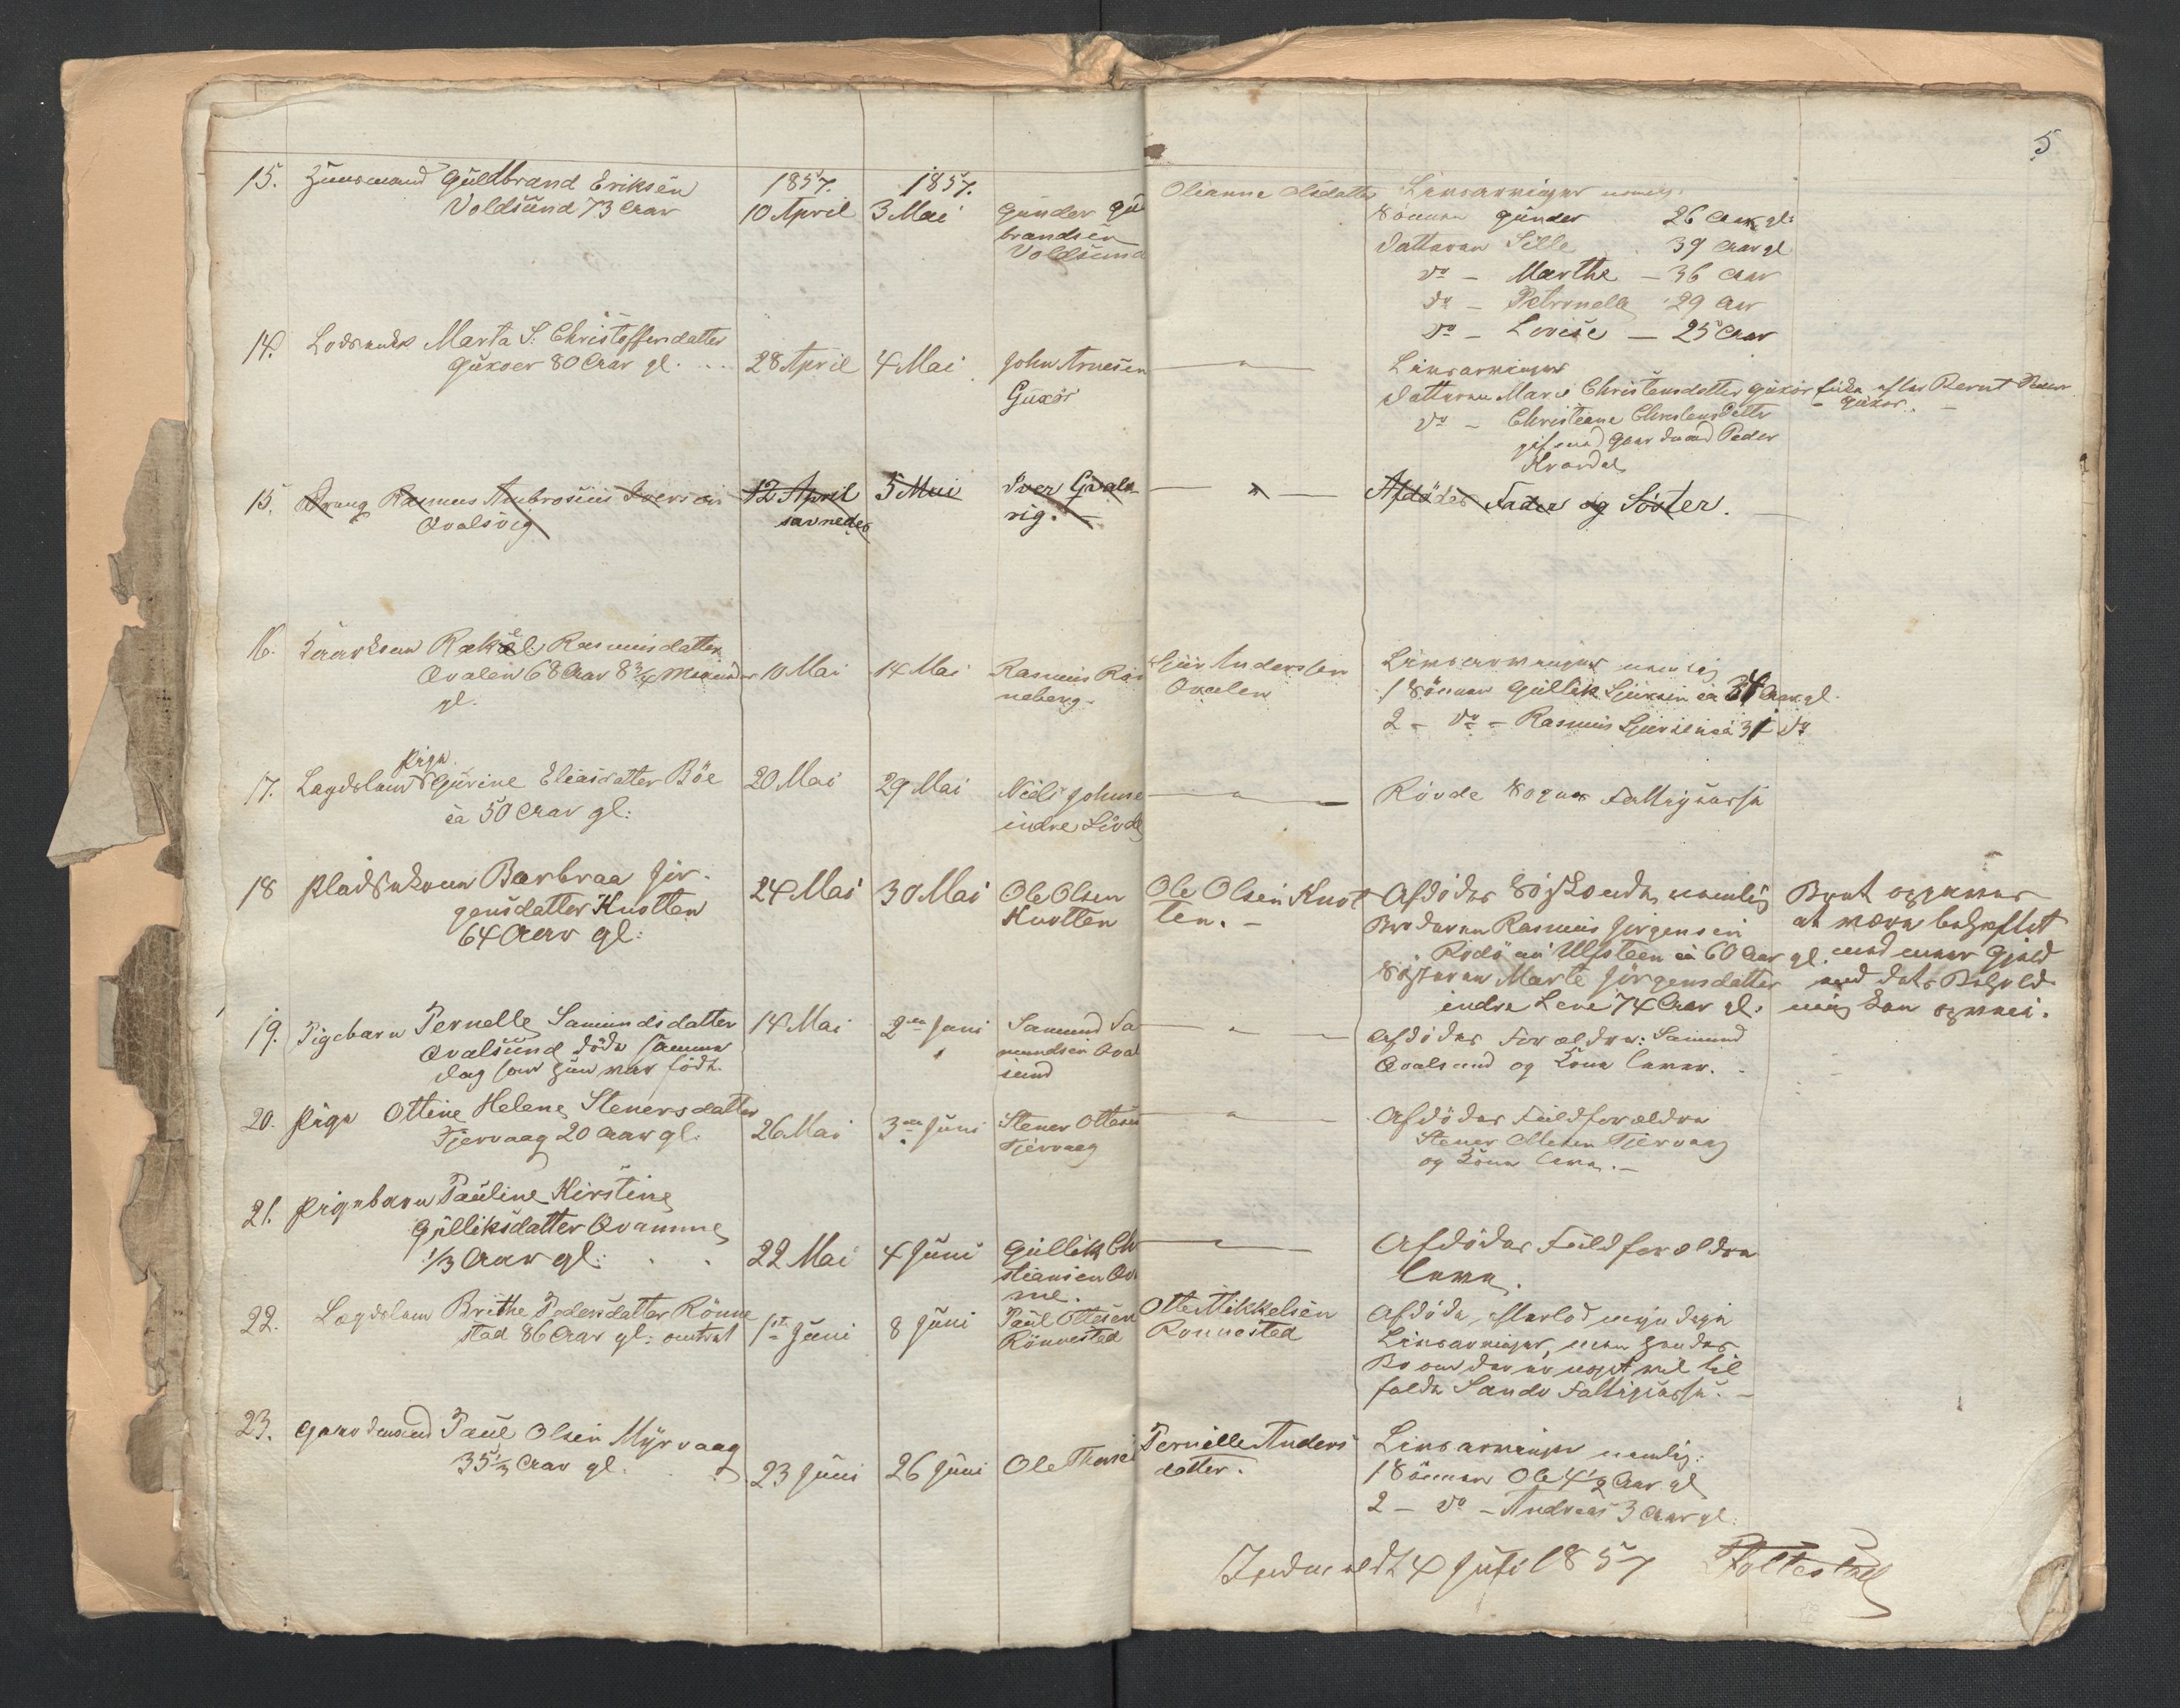 5
15. Huusmand Guldbrand Eriksen
Voldsund 73 Aar
1857.
10 April
1857.
3 Mai
Gunder Gu
brandsen
Voldsund
Olianne Olsdatter
Livsarvinger
Sönnen Gunder 26 Aar gl:
Datteren Sille 39 Aar gl
do - Marthe - 36 Aar
do - Petronelle 29 Aar
do - Lovise - 25 Aar
14. Marta S. Christoffersdatter
Gukoer 80 Aar gl. ...
28 April
4 Mai
John Arnesen
Guxör
— " —
Livsarvinger
Datteren Mari Christensdatter Guxör Enke efter Bernt
Guxör. -
do - Christiane Christensdatter
gift med Gaardmand Peder
Kvardal
15. Dreng Rasmus Ambrosius Iversen
Qvalsvig
12 April
savnedes
5 Mai
Iver Qvals
vig. -
— " —
Afdödes Fader og Söster.
16. Kaarkone Rakel: Rasmusdatter
Qvalen 68 Aar 8 3/4 Maaneder
gl.
10 Mai
14 Mai
Rasmus
neberg.
Sjur Anderssen
Qvalen
Livsarvinger nemlig
1 Sönnen Gullik Sjursen ca 34 Aar gl.
2 - do - Rasmus Sjursen ca 31 do
17. Lægdslem Pige Gurine Eliasdatter Böe
ca 50 Aar gl:
20 Mai
29 Mai
Niels Johnse
indre
— " —
Rövde Sogns Fattigkasse
18 Pladsekonen Barbraa Jör-
gensdatter Knotten
64 Aar gl:
24 Mai
30 Mai
Ole Olsen
Knotten
Ole Olsen Knot
ten. -
Afdödes Södskende, nemlig
Broderen Rasmus Jörgensen
Rodö an Ulfsteen ca 60 Aar gl.
Söstere Marte Jörgensdatter
indre Lene 74 Aar gl.
Boet opgives
at være behæftet
med mere Gjæld
end dets Behold-
ning kan opveie.
19. Pigebarn Pernelle Samundsdatter
Qvalsund döde samme
dag som hun var födt.
14 Mai
2den Juni
Samund Sa
mundsen Qval
sund
— " —
Afdödes Forældre: Samund
Qvalsund og Kone lever. -
20. Pige Ottine Helene Stenersdatter
Tjervaag 20 Aar gl.
26 Mai
3die Juni
Stener Ottesen
Tjervaag
— " —
Afdödes Fuldforældre
Stener Ottesen Tjervaag
og Kone leve. -
21. Pigebarn Pauline Kirstine
Gulliksdatter Qvamme
1/3 Aar gl: . .
22 Mai
4 Juni
Gullik Ch
stiansen Qv
me.
— " —
Afdödes Fuldforældre
leve.
22. Lægdslem Brithe Pedersdatter Rönne
stad 86 Aar gl: omtrent
1ste Juni
8 Juni
Paul Ottesen
Rönnestad
Otte Mikkelsen
Rönnestad
Afdöde efterlod ingen
Livsarvinger, men hendes
Bo om der er noget vil til
falde Sande Fattigkasse. -
23. Gaardmand Paul Olsen Myrvaag
35 1/3 Aar gl. . .
23 Juni
26 Juni
Ole
Pernille Anders
datter.
Livsarvinger nemlig:
1 Sönnen Ole 4 1/2 Aar gl
2 - do - Andreas 3 Aar gl:
Indmeldt 4 Juli 1857